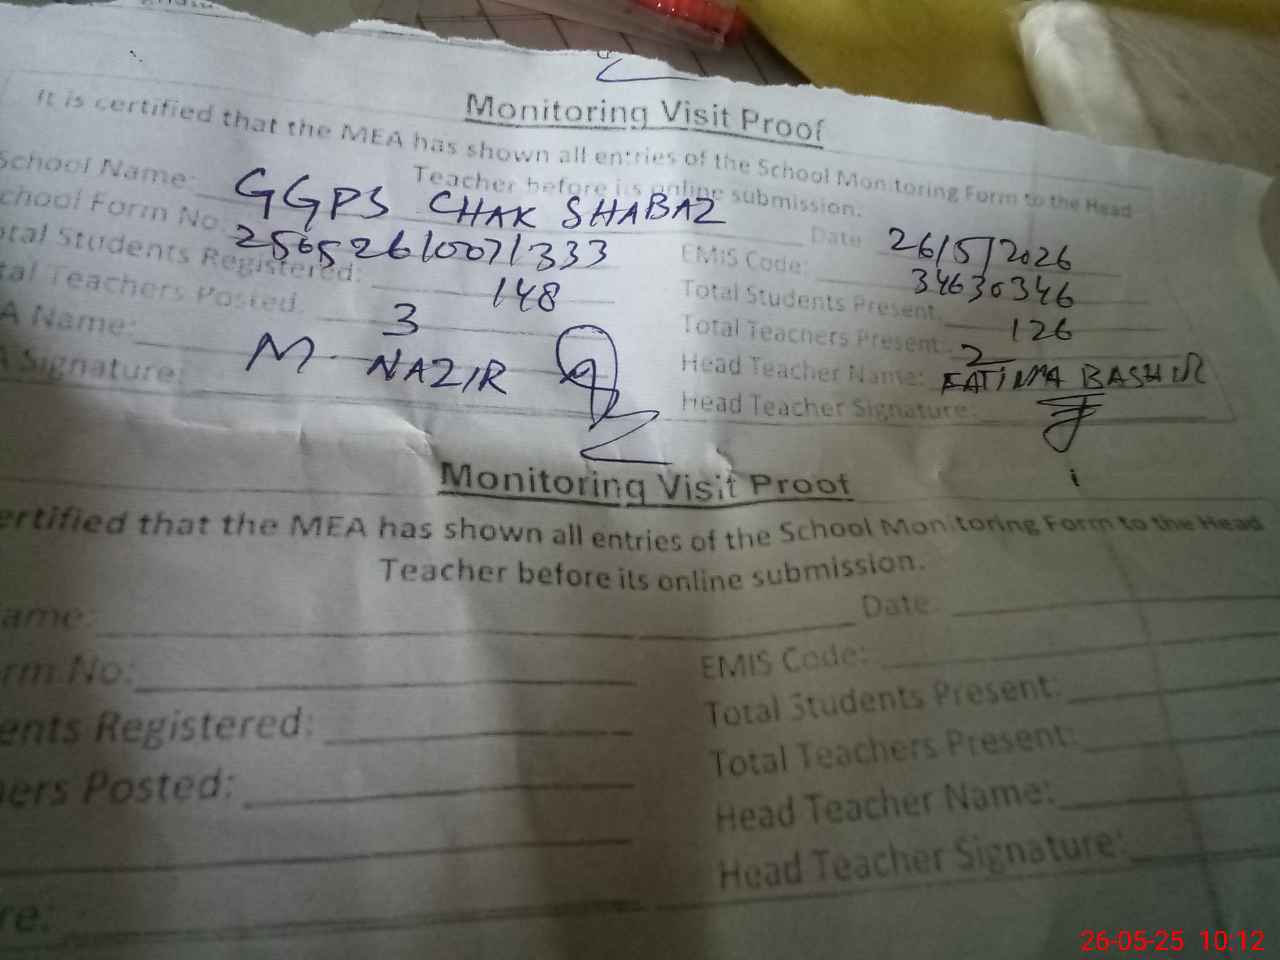 Monitoring Visit Proof
It is certified that the MEA has shown all entries of the School Monitoring Form to the Head
Teacher before its online submission.
School Name: GGPS CHAK SHABAZ Date 26/5/2026
chool Form No. EMIS Code: 34630346
otal Students Registered: 148 Total Students Present: 126
tal Teachers Posted: 3 Total Teachers Present: 2
A Name: M. NAZIR Head Teacher Name: FATIMA BASHIR
A Signature: Head Teacher Signature:
Monitoring Visit Proof
ertified that the MEA has shown all entries of the School Monitoring Form to the Head
Teacher before its online submission.
ame: Date:
rm No: EMIS Code:
ents Registered: Total Students Present:
hers Posted: Total Teachers Present:
Head Teacher Name:
re: Head Teacher Signature:
26-05-25 10:12